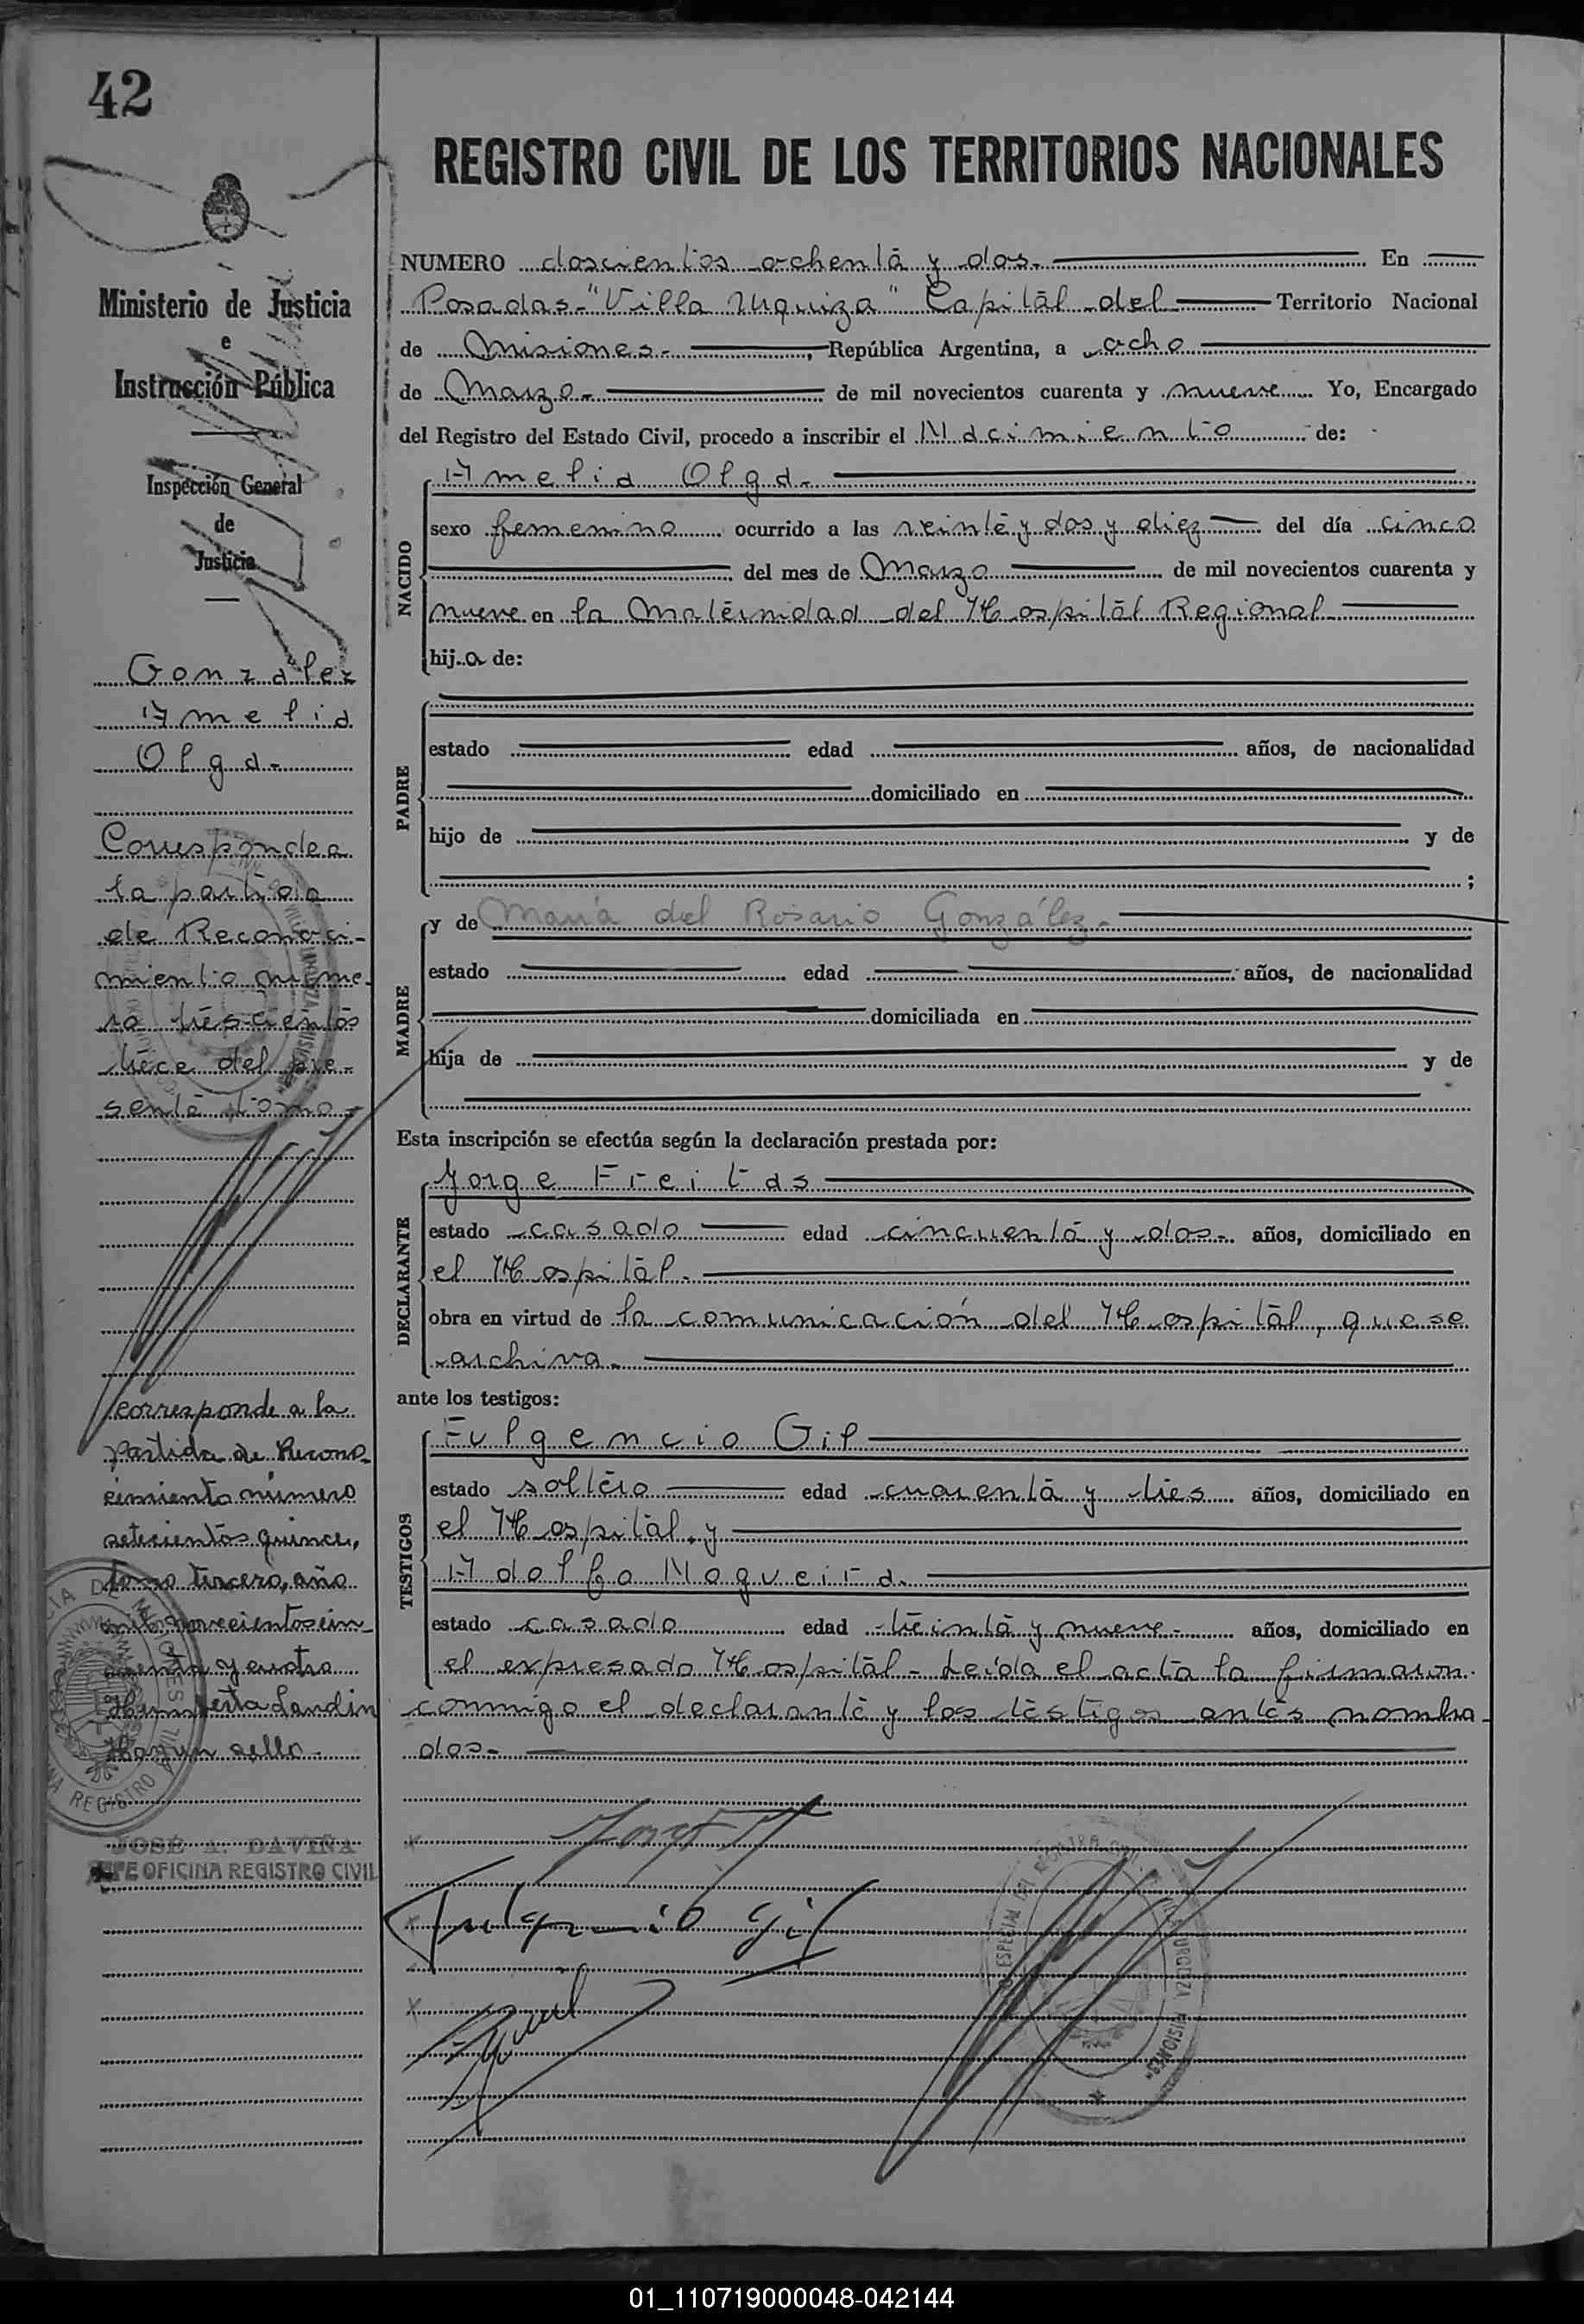 42
Ministerio de Justicia
e
Instrucción Pública
Inspección General
de
Justicia
Gonzalez
Amelia
Olga.-
Corresponde a
la partida
de Reconoci-
miento nume-
ro trescientos
trece del pre-
sente tomo.-
corresponde a la
partida de Recono-
cimiento número
setecientos quince,
tomo tercero, año
mil novecientos cin-
cuenta y cuatro
Landin
Hay un sello.-
JOSÉ A. DAVIÑA
JEFE OFICINA REGISTRO CIVIL
REGISTRO CIVIL DE LOS TERRITORIOS NACIONALES
NUMERO doscientos ochenta y dos.- En
Posadas-"Villa Urquiza" Capital del Territorio Nacional
de Misiones.- , República Argentina, a ocho
de Marzo.- de mil novecientos cuarenta y nueve Yo, Encargado
del Registro del Estado Civil, procedo a inscribir el Nacimiento de:
NACIDO
Amelia Olga.-
sexo femenino ocurrido a las veinte y dos y diez del día cinco
del mes de Marzo de mil novecientos cuarenta y
nueve en la Maternidad del Hospital Regional
hij a de:
PADRE
estado edad años, de nacionalidad
domiciliado en
hijo de y de
;
MADRE
y de María del Rosario González.-
estado edad años, de nacionalidad
domiciliada en
hija de y de
Esta inscripción se efectúa según la declaración prestada por:
DECLARANTE
Jorge Freitas
estado casado edad cincuenta y dos.- años, domiciliado en
el Hospital.-
obra en virtud de la comunicación del Hospital, que se
archiva.-
ante los testigos:
TESTIGOS
Fulgencio Gil
estado soltero edad cuarenta y tres años, domiciliado en
el Hospital y
Adolfo Nogueira.
estado casado edad treinta y nueve.- años, domiciliado en
el expresado Hospital.- Leida el acta la firmaron
conmigo el declarante y los testigos antes nombra-
dos.-
Fulgencio Gil
01_110719000048-042144